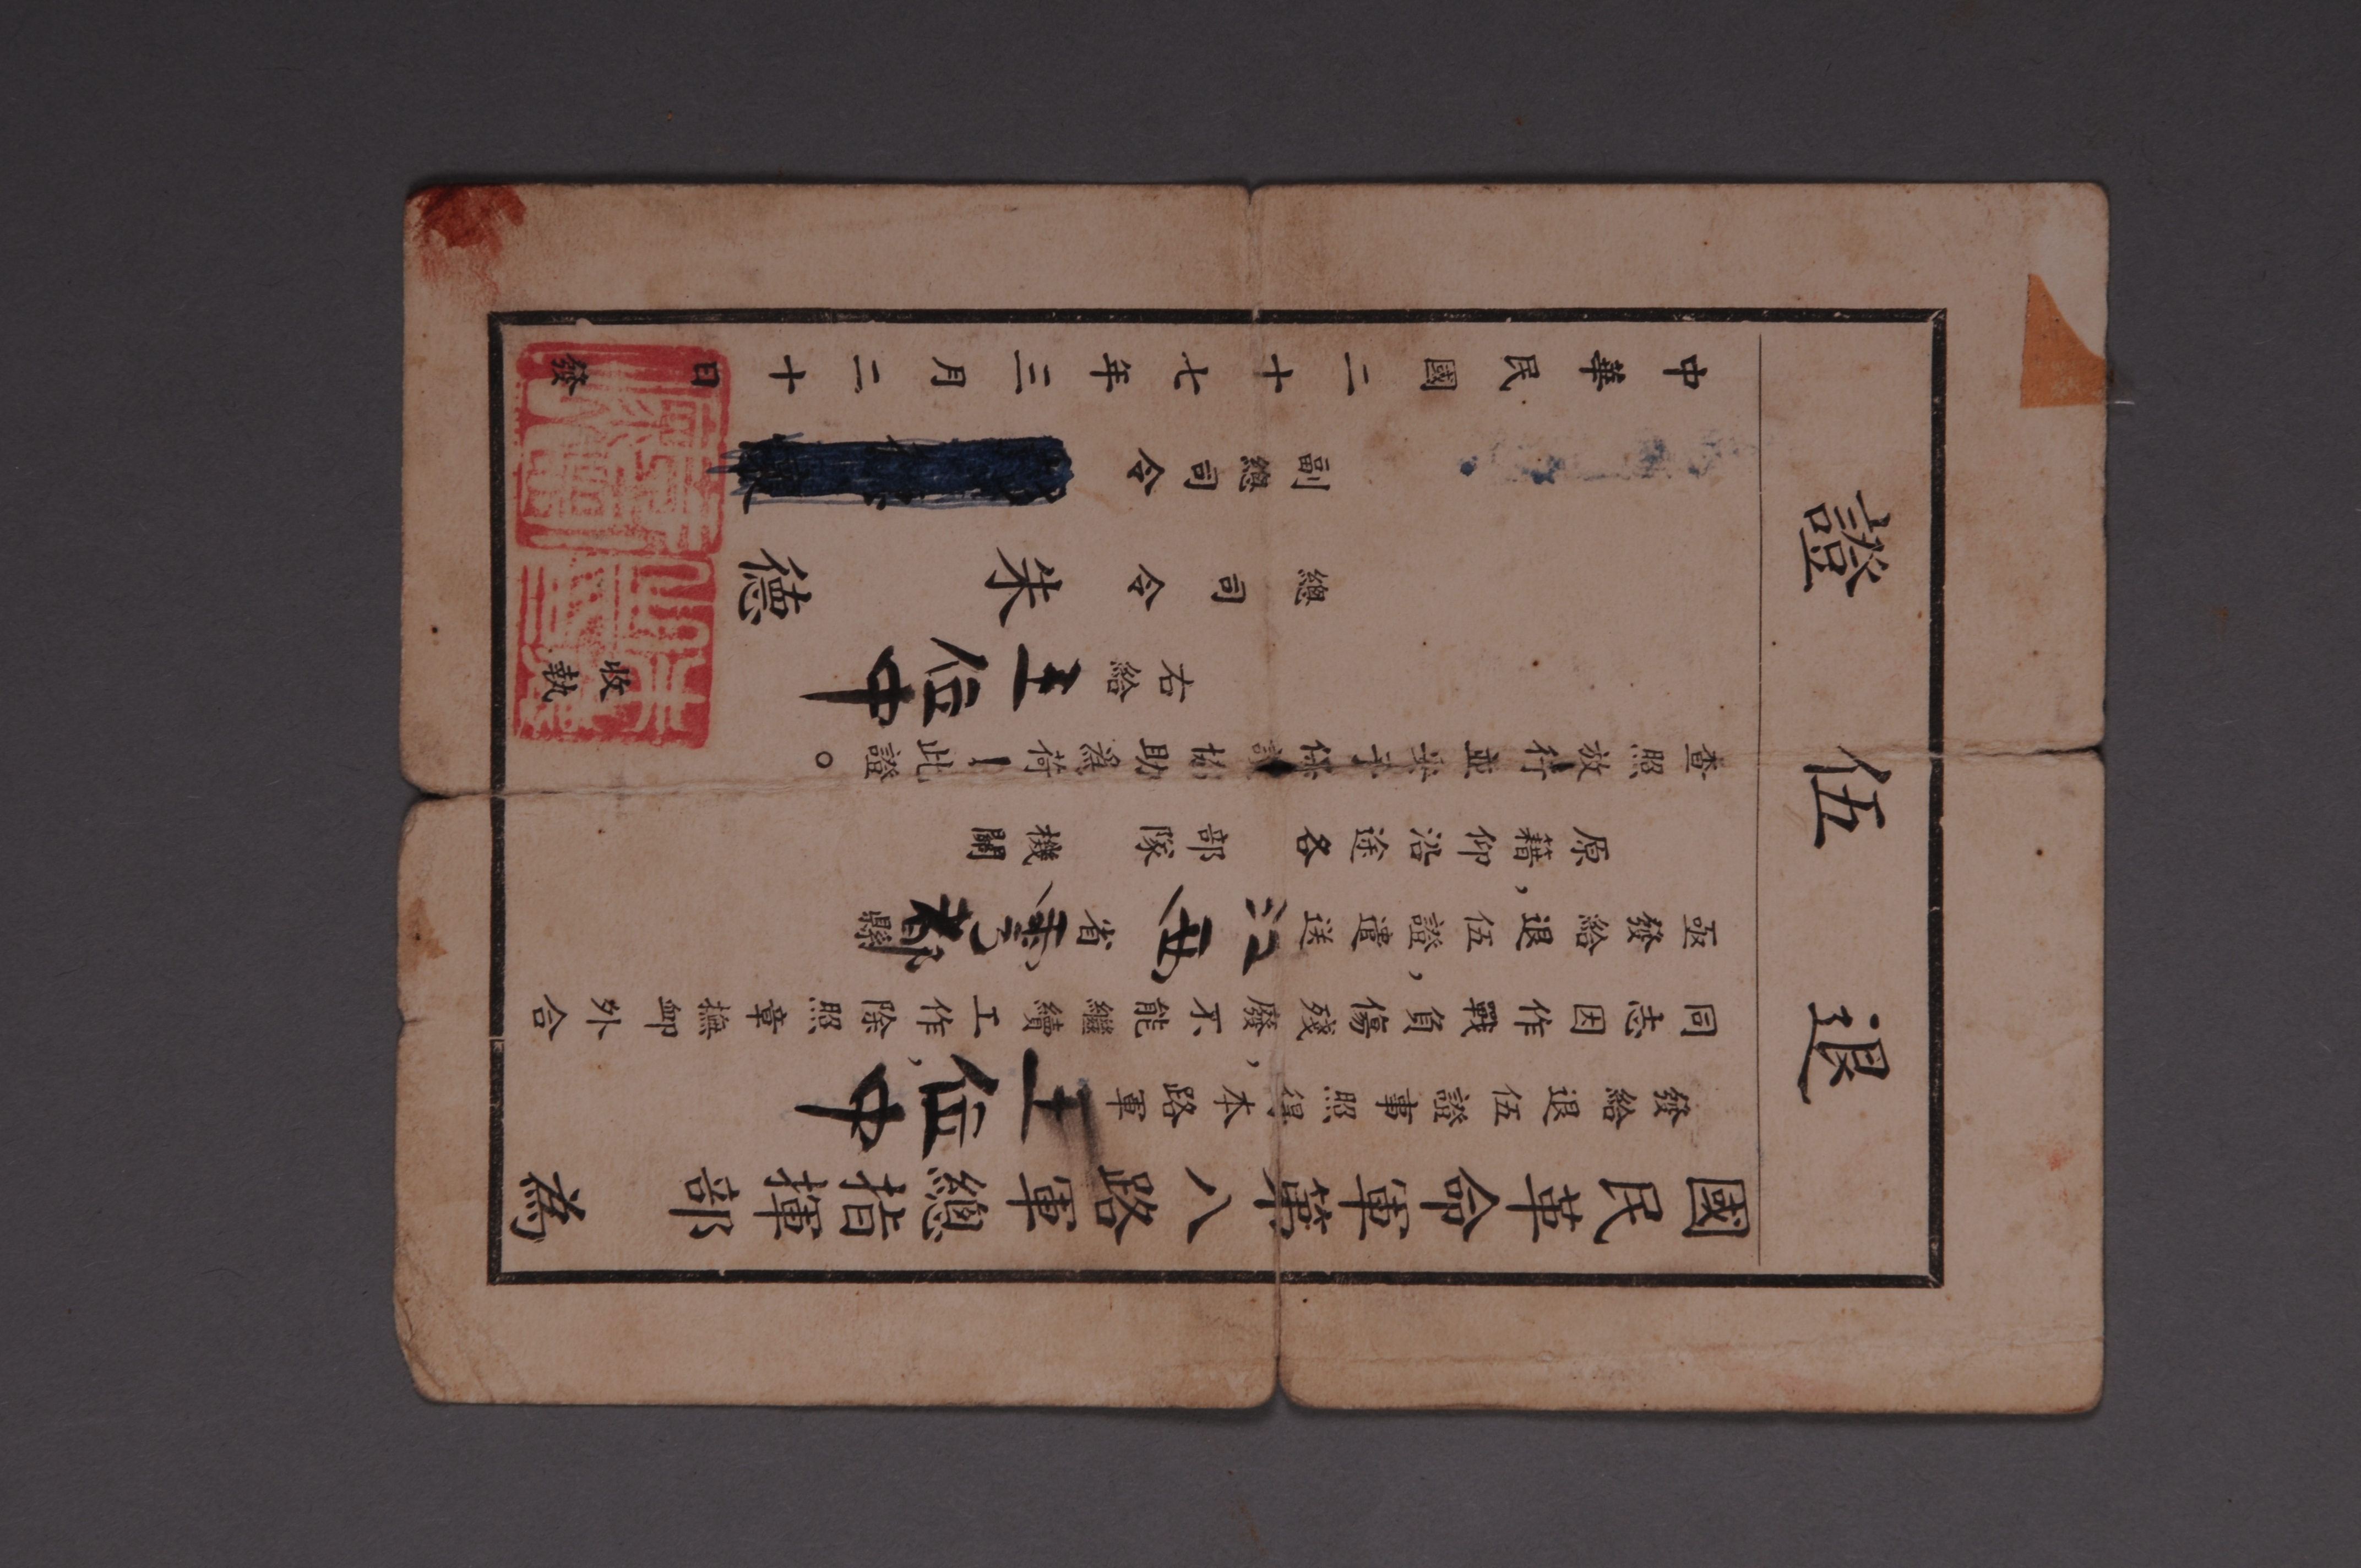 退伍證
國民革命軍第八路軍總指揮部為
發給退伍證事照得本路軍王位中
同志因作戰負傷,殘廢不能繼續工作,除照章撫卹外合
亟發給退伍證,遣送江西省雩都縣
原籍,仰沿途各部隊機關
查照放行並希予保護協助為荷!此證。
右給王位中收執
總司令朱德
副總司令
中華民國二十七年三月二十日發